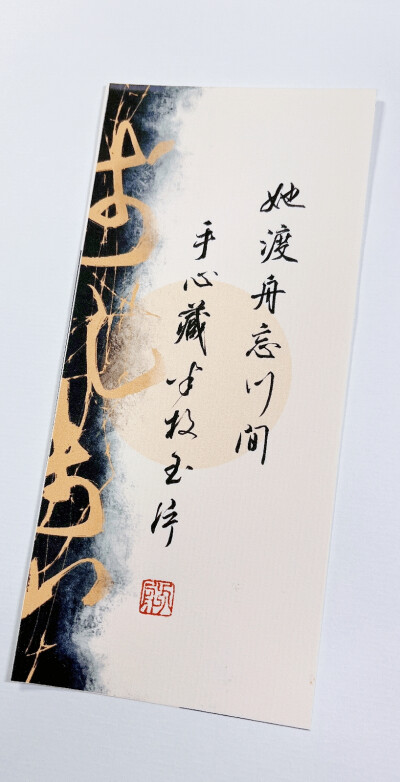 她渡舟忘川间
手心藏半枚玉片